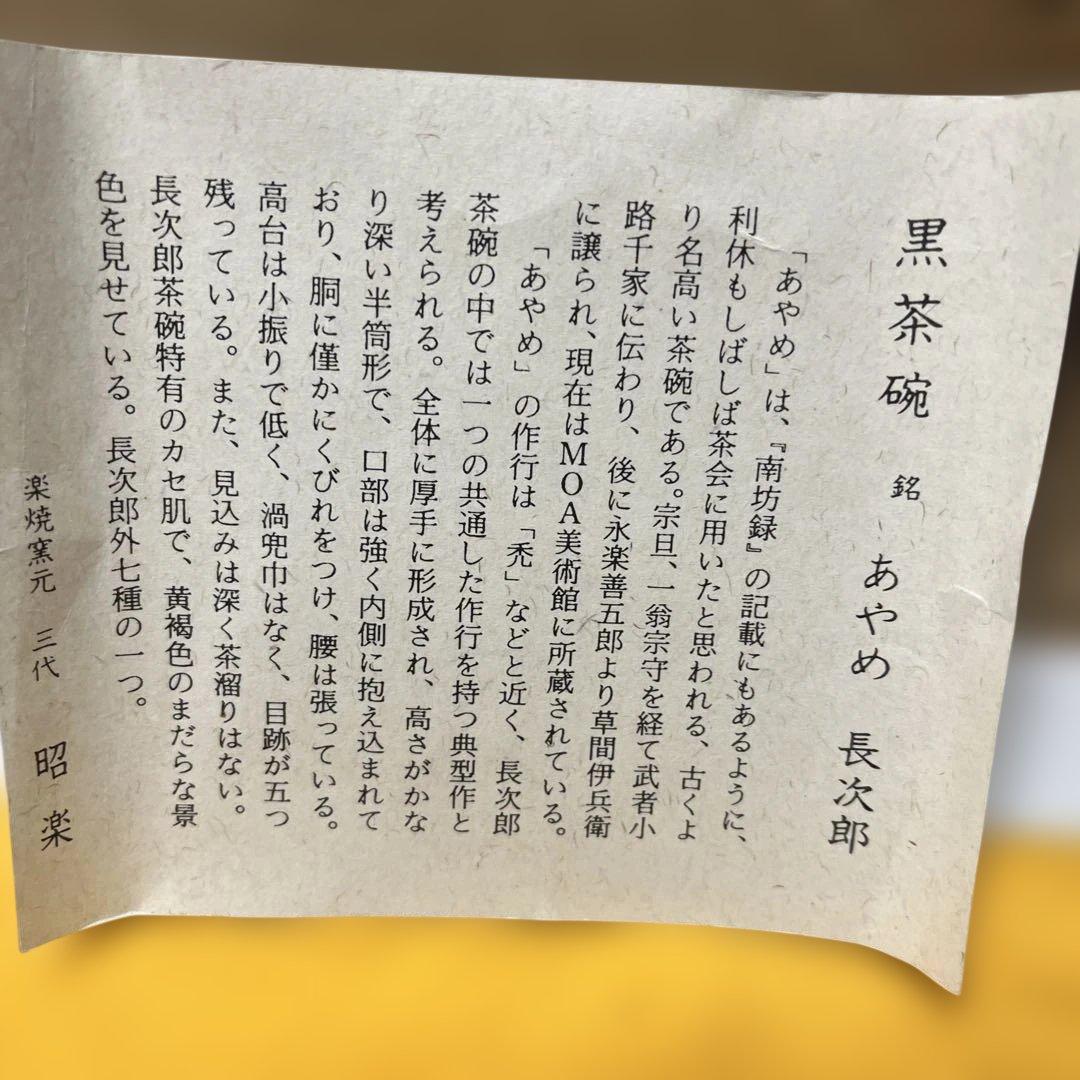 黒茶碗 銘 あやめ 長次郎
「あやめ」は、『南坊録』の記載にもあるように、
利休もしばしば茶会に用いたと思われる、古くよ
り名高い茶碗である。宗旦、一翁宗守を経て武者小
路千家に伝わり、後に永楽善五郎より草間伊兵衛
に譲られ、現在はMOA美術館に所蔵されている。
「あやめ」の作行は「禿」などと近く、長次郎
茶碗の中では一つの共通した作行を持つ典型作と
考えられる。全体に厚手に形成され、高さがかな
り深い半筒形で、口部は強く内側に抱え込まれて
おり、胴に僅かにくびれをつけ、腰は張っている。
高台は小振りで低く、渦兜巾はなく、目跡が五つ
残っている。また、見込みは深く茶溜りはない。
長次郎茶碗特有のカセ肌で、黄褐色のまだらな景
色を見せている。長次郎外七種の一つ。
楽焼窯元 三代 昭楽